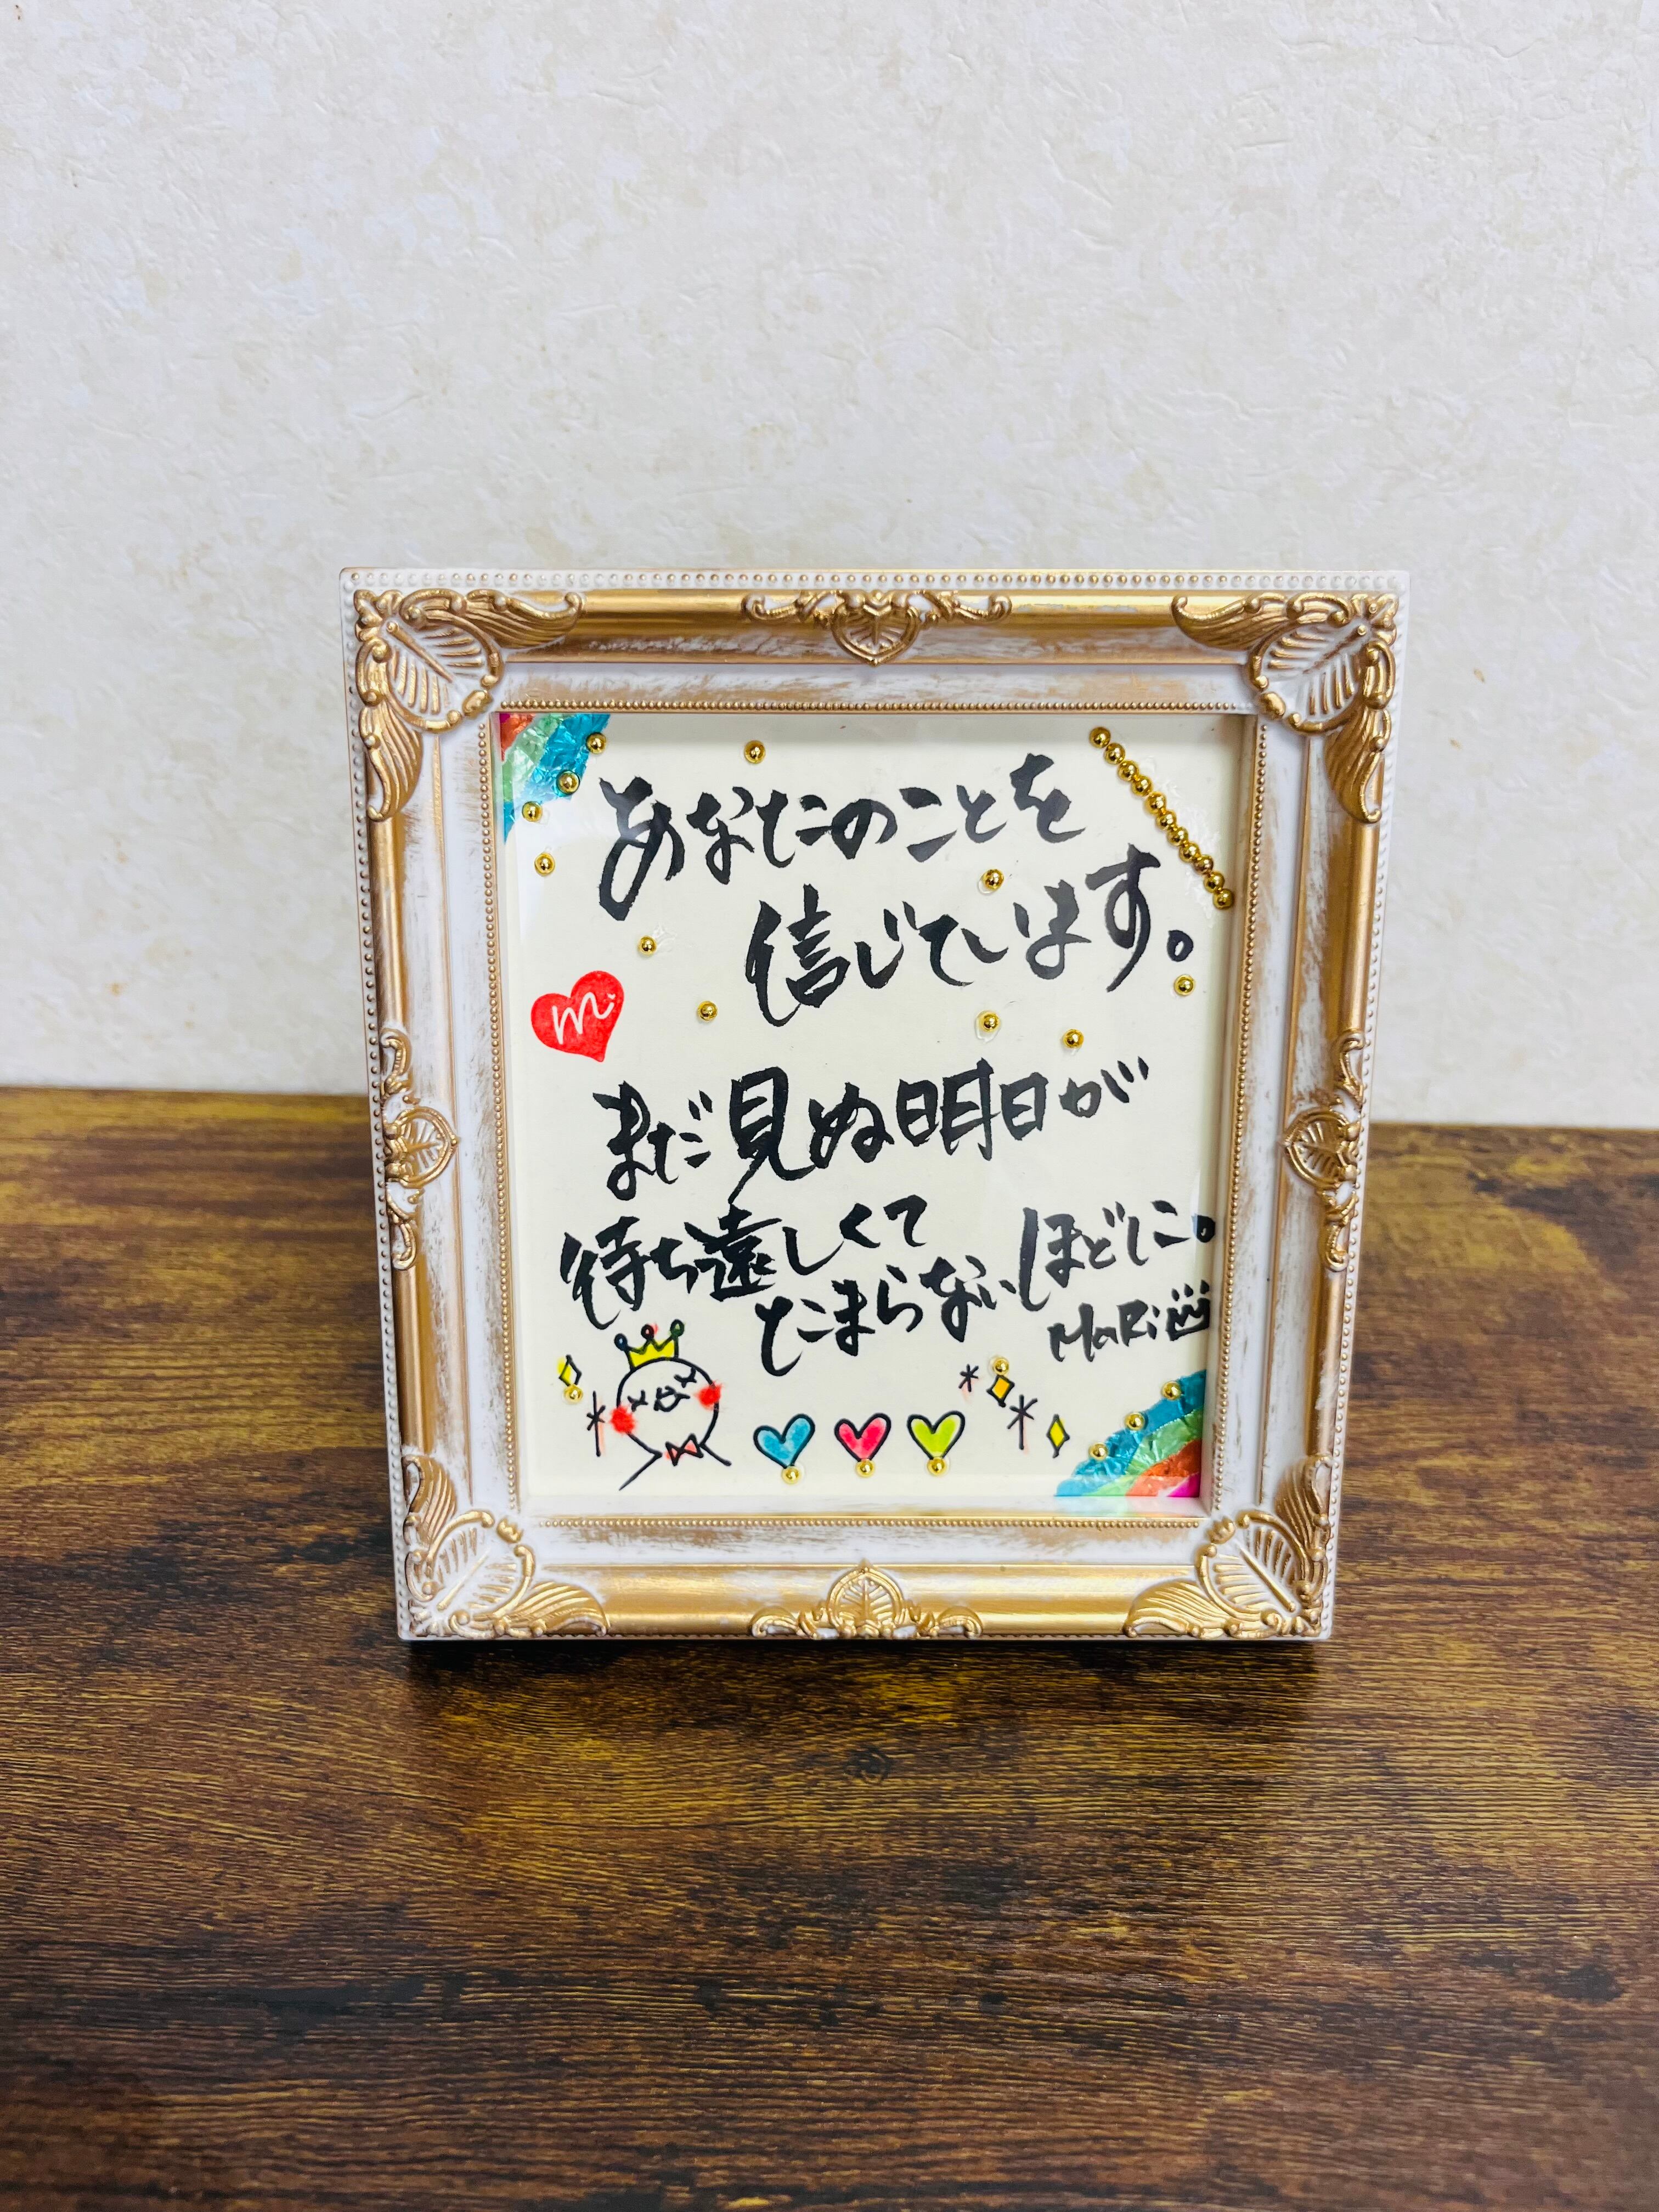 あなたのことを
信じています。
mi
まだ見ぬ明日が
待ち遠しくて
たまらないほどに。
MaRi